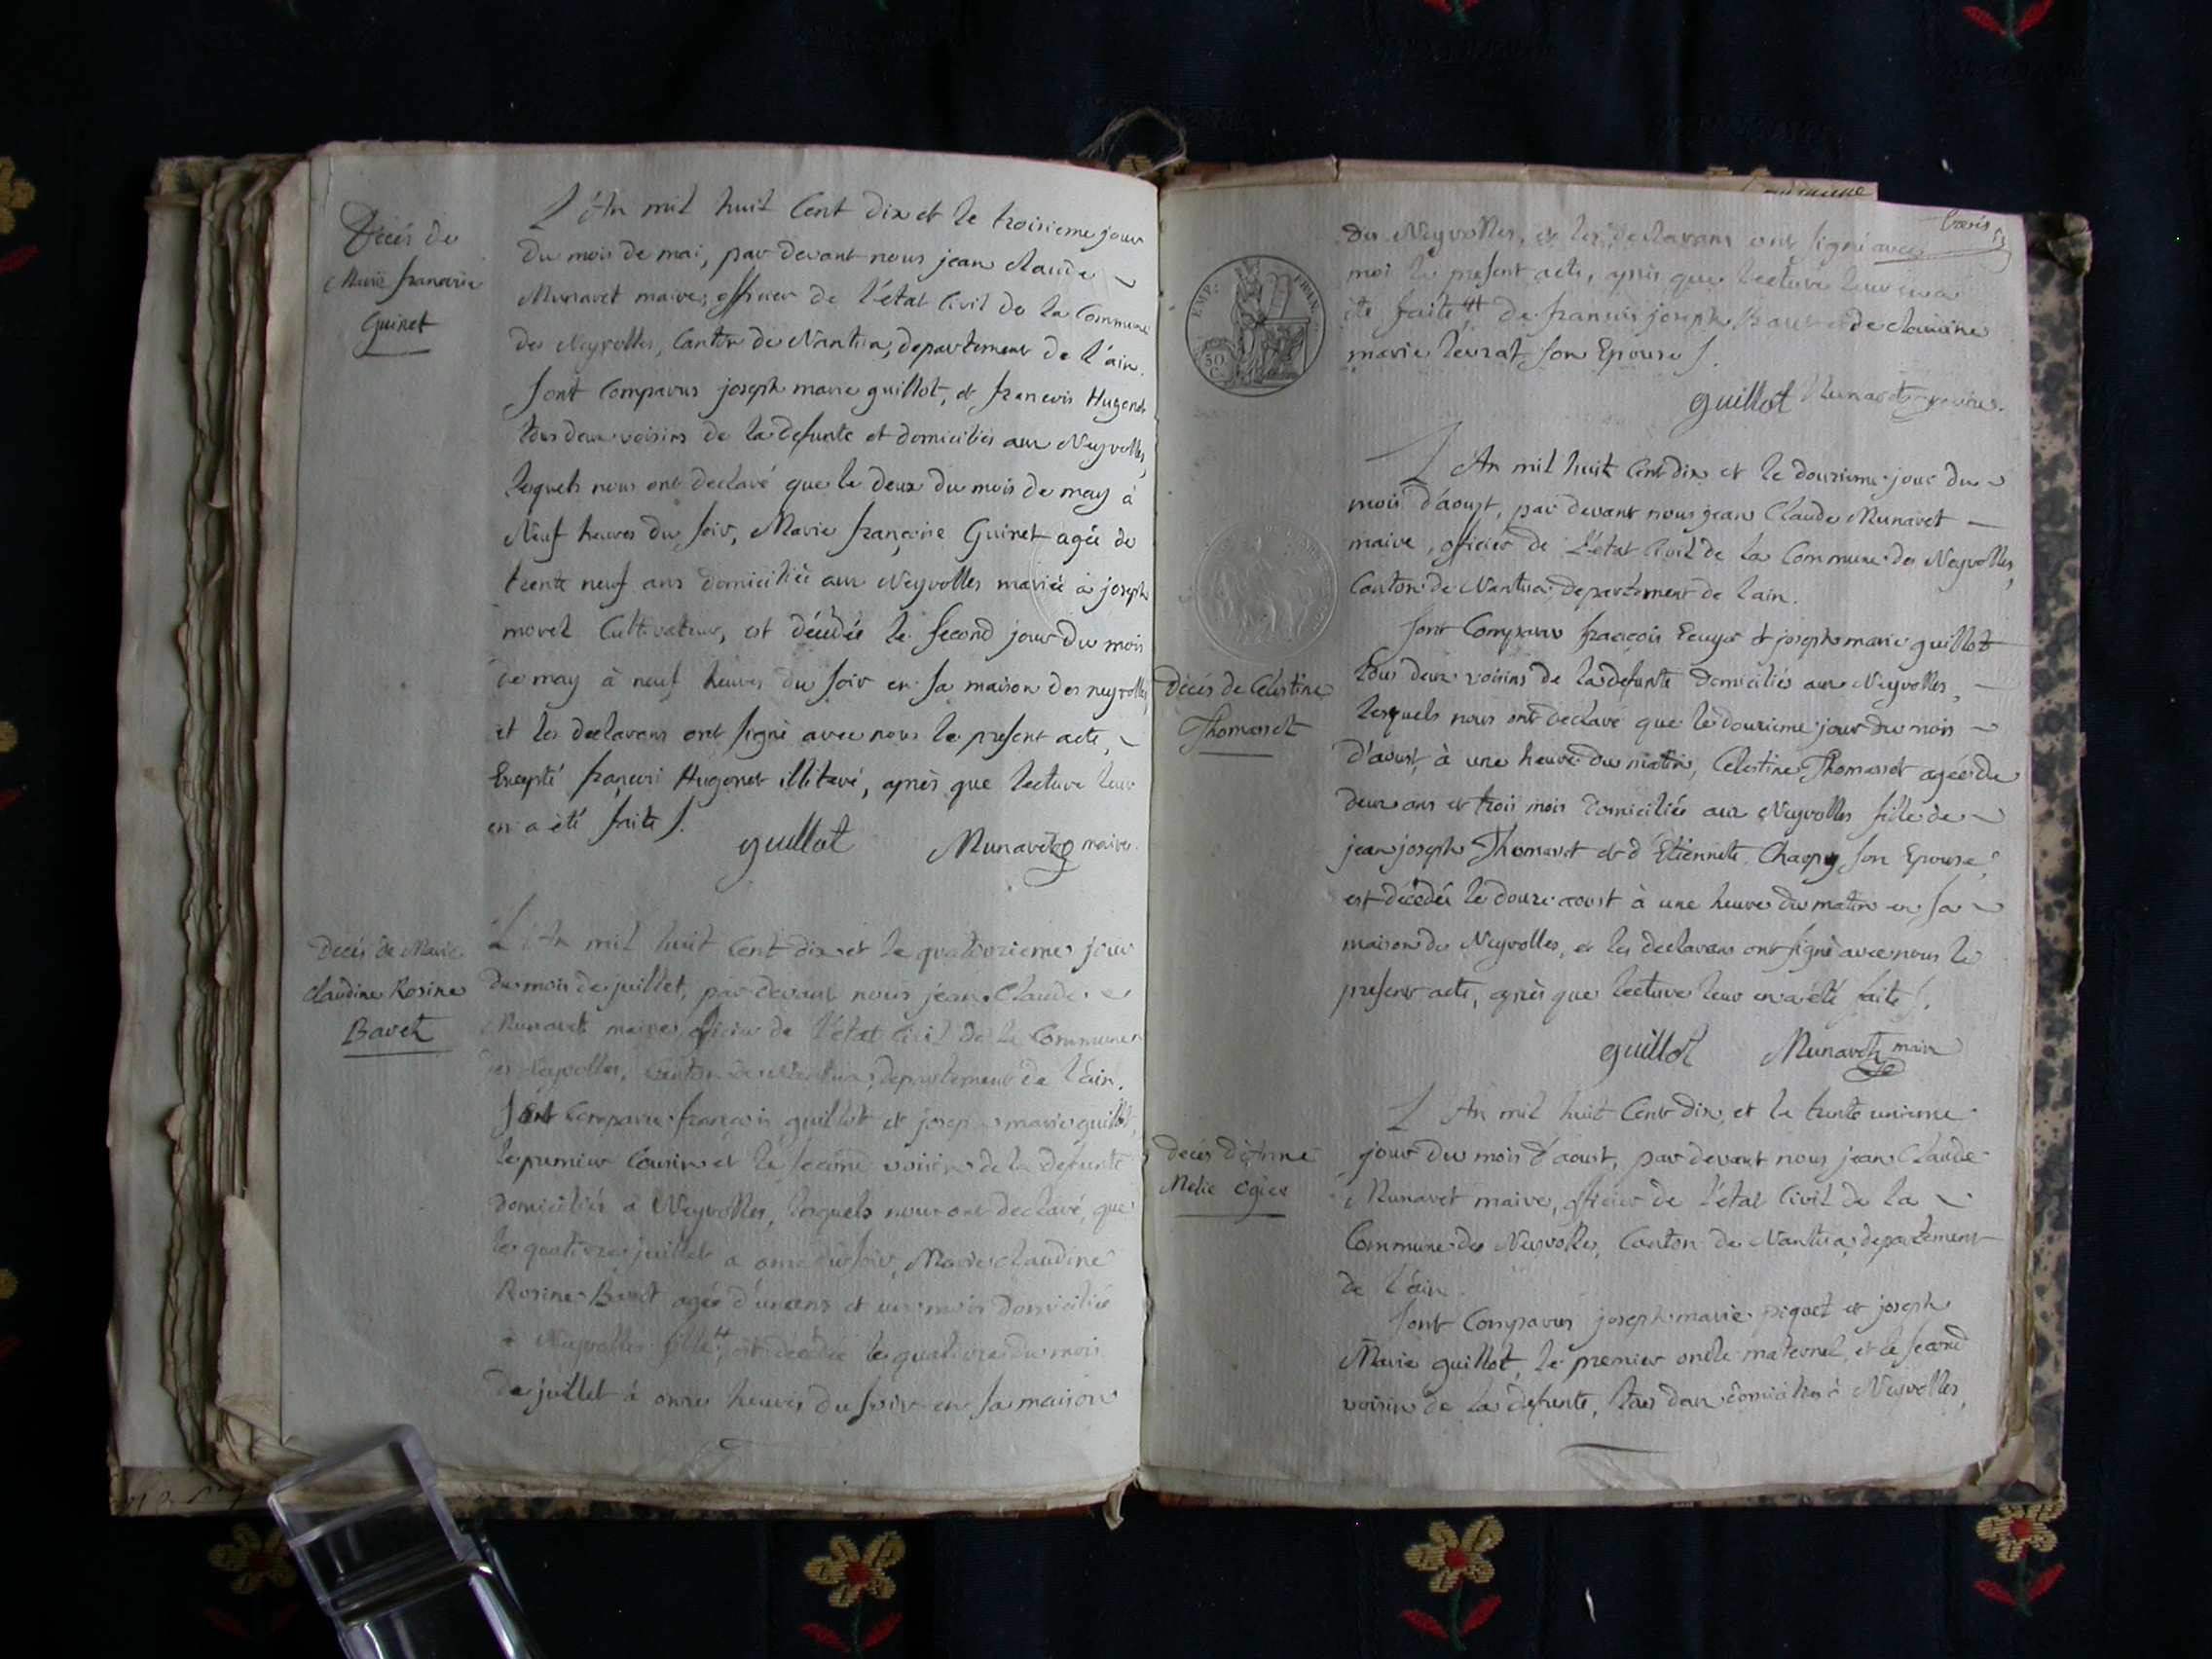 Décés de
Marie françoise
Guinet
L'An mil huit Cent dix et le troisieme jour
du mois de mai, par devant nous jean claude
Munaret maire, officier de l'état Civil de la Commune
des Neyrolles, Canton de Nantua, departement de l'ain.
Sont Comparus joseph marie guillot, et francois Hugonet
tous deux voisins de la defunte et domiciliés aux Neyrolles,
lesquels nous ont declaré que le deux du mois de may à
Neuf heures du soir, Marie françoise Guinet agée de
trente neuf ans domiciliée aux Neyrolles mariée à joseph
morel Cultivateur, est décédée le second jour du mois
de may à neuf heures du soir en sa maison des neyrolles,
et les declarans ont signé avec nous le present acte,
Excepté françois Hugonet illiteré, après que lecture leur
en a été faite /.
guillot Munaret maire.
Décés de Marie
claudine Rosine
Baret
L'An mil huit Cent dix et le quatorzieme jour
du mois de juillet, par devant nous jean Claude
Munaret maire, oficier de l'état Civil de la Commune
des Neyrolles, Canton de Nantua, departement de l'ain.
Sont Comparus françois guillot et joseph marie guillot,
le premier Cousin et le second voisin de la defunte
domiciliés à Neyrolles, lesquels nous ont declaré, que
le quatorze juillet a onze du soir, Marie claudine
Rosine Baret agée d'un ans et un mois domiciliée
a Neyrolles fille # est décédée le quatorze du mois
de juillet à onze heures du soir en sa maison
trois
des Neyrolles, et les declarans ont signé avec
moi le present acte, après que lecture leur en a
été faite # de francois joseph Baret et de claudine
marie leurat son Epouse /.
guillot Munaret maire.
EMP: FRAN:
50
C.
L'An mil huit Cent dix et le douzieme jour du
mois d'aoust, par devant nous jean Claude Munaret
maire, oficier de l'état Civil de la Commune des Neyrolles,
Canton de Nantua, departement de l'ain.
Sont Comparus françois Ecuyer et joseph marie guillot
tous deux voisins de la defunte domiciliés aux Neyrolles,
Décés de Celestine
Thomasset
lesquels nous ont declaré que le douzieme jour du mois
d'aoust, à une heure du matin, Celestine Thomasset agée de
deux ans et trois mois domiciliée aux Neyrolles fille de
jean joseph Thomasset et d'Etiennette Chapuy son Epouse,
est décédée le douze aoust à une heure du matin en sa
maison des Neyrolles, et les declarans ont signé avec nous le
present acte, après que lecture leur en a été faite /.
guillot Munaret maire
L'An mil huit Cent dix, et le trente unieme
jour du mois d'aoust, par devant nous jean Claude
Munaret maire, oficier de l'état Civil de la
Commune des Neyrolles, Canton de Nantua, departement
de l'ain.
Décés d'Anne
Melie ogier
Sont Comparus joseph marie piquet et joseph
Marie guillot, le premier oncle maternel, et le second
voisin de la defunte, tous deux domiciliés à Neyrolles,